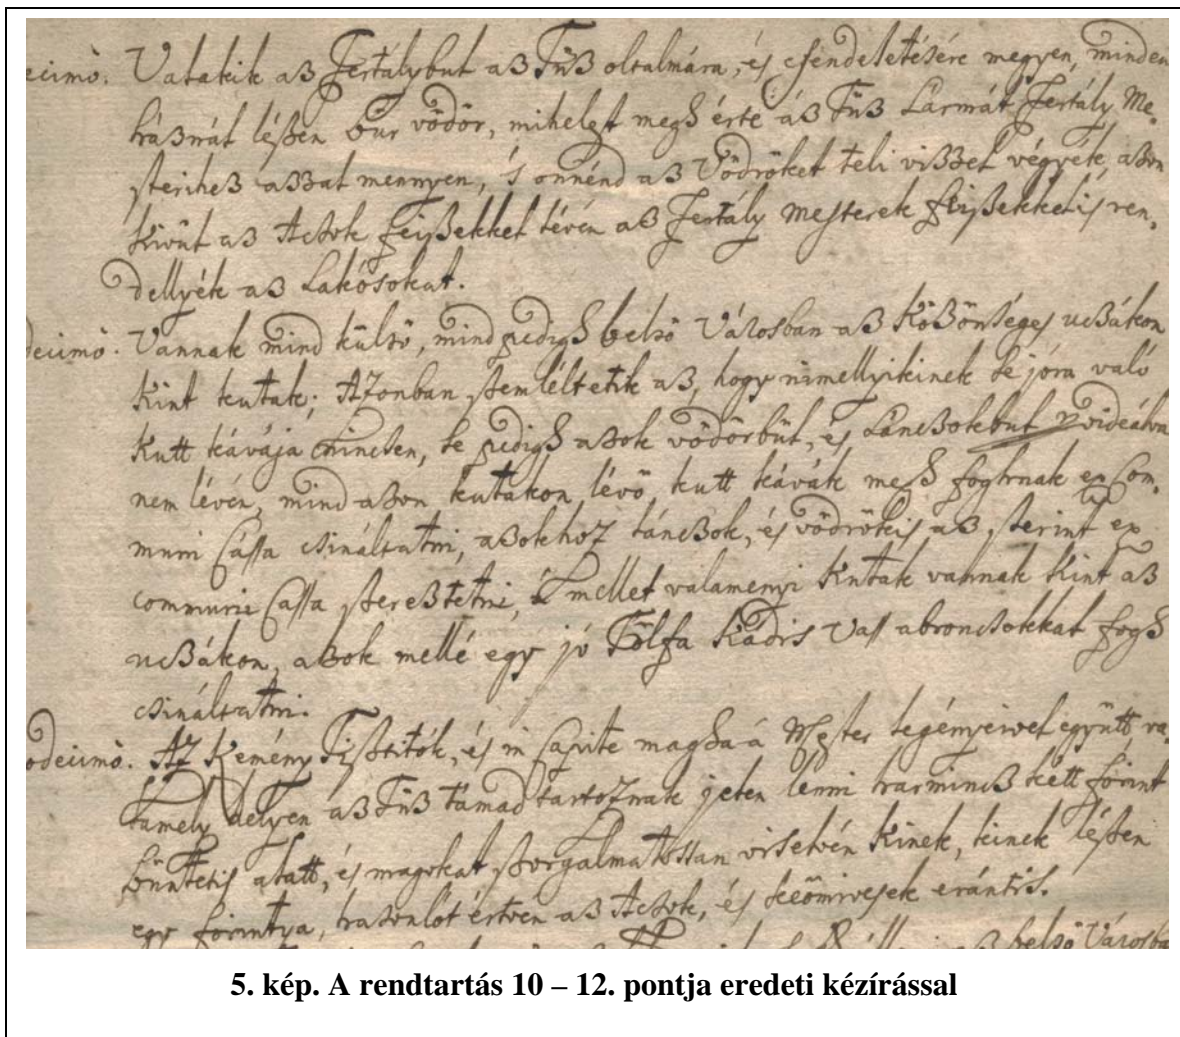 ecimò. Valakik az Fertálybul az Tüz oltalmára, és csendeletésére megyen, minden
háznál lészen bür vödör, mihelyst megh érte áz Tüz Lármát Fertály Me,
sterihez azzal mennyen, 's onnénd az Vödröket teli vizzel végyék, azon
kivül az Acsok Feiszekkel lévén az Fertály mesterek feiszekkelis ren,
dellyék az Lakósokat.
decimò. Vannak mind külsö, mind pedigh belsö Városban az Közönséges uczákon
kint kutak; Azonban szemléltetik az, hogy nimellyikinek se jóra való
kutt kávája nincsen, se pedigh azok vödörbül, és Lánczokbul provideálva
nem lévén, mind azon kutakon lévö kutt kávák megh foghnak ex Com,
muni Cassa csináltatni, azokhoz lánczok, és vödrökis az szerint ex
communi Cassa szereztetni, E mellet valamenyi Kutak vannak kint az
uczákon, azok mellé egy jó Tölfa Kádis Vass abroncsokkal fogh
csináltatni.
odecimò. Az Kemény Tisztitók, és in Capite magha á Mester legényeivel együtt va,
lamely helyen az Tüz támad tartoznak jelen lenni harmincz kétt forint
büntetis alatt, és magokat szorgalmatossan viselvén kinek, kinek lészen
egy forintya, hasonlót értvén az Acsok, és keömivesek erántis.
belsö Városba
5. kép. A rendtartás 10 – 12. pontja eredeti kézírással